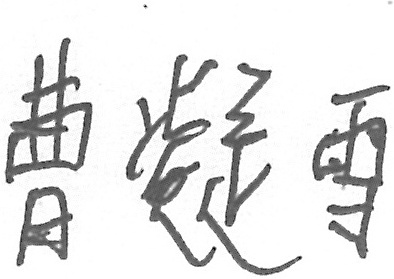 曹凝雪